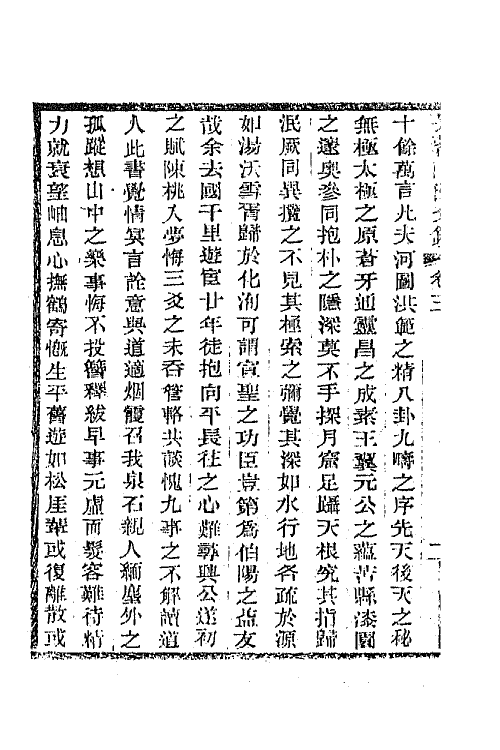 十餘萬言凡夫河圖洪範之精八卦九疇之序先天後天之秘
無極太極之原蒼牙通靈昌之成素王翼元公之蘊苦縣漆園
之邃奧參同抱朴之隱深莫不手探月窟足躡天根究其指歸
泯厥同異攬之不見其極索之彌覺其深如水行地各疏於源
如湯沃雪胥歸於化洵可謂宣聖之功臣豈第為伯陽之益友
哉余去國千里遊宦廿年徒抱向平長往之心難尋興公遂初
之賦陳桃入夢悔三爻之未吞管輅共談愧九事之不解讀道
人此書覺情冥言詮意與道適烟霞召我泉石親人緬塵外之
孤蹤想山中之樂事悔不投簪釋紱早事元虛而鬢容難待精
力就衰望岫息心撫鶴寄慨生平舊遊如松厓輩或復離散或
卷三